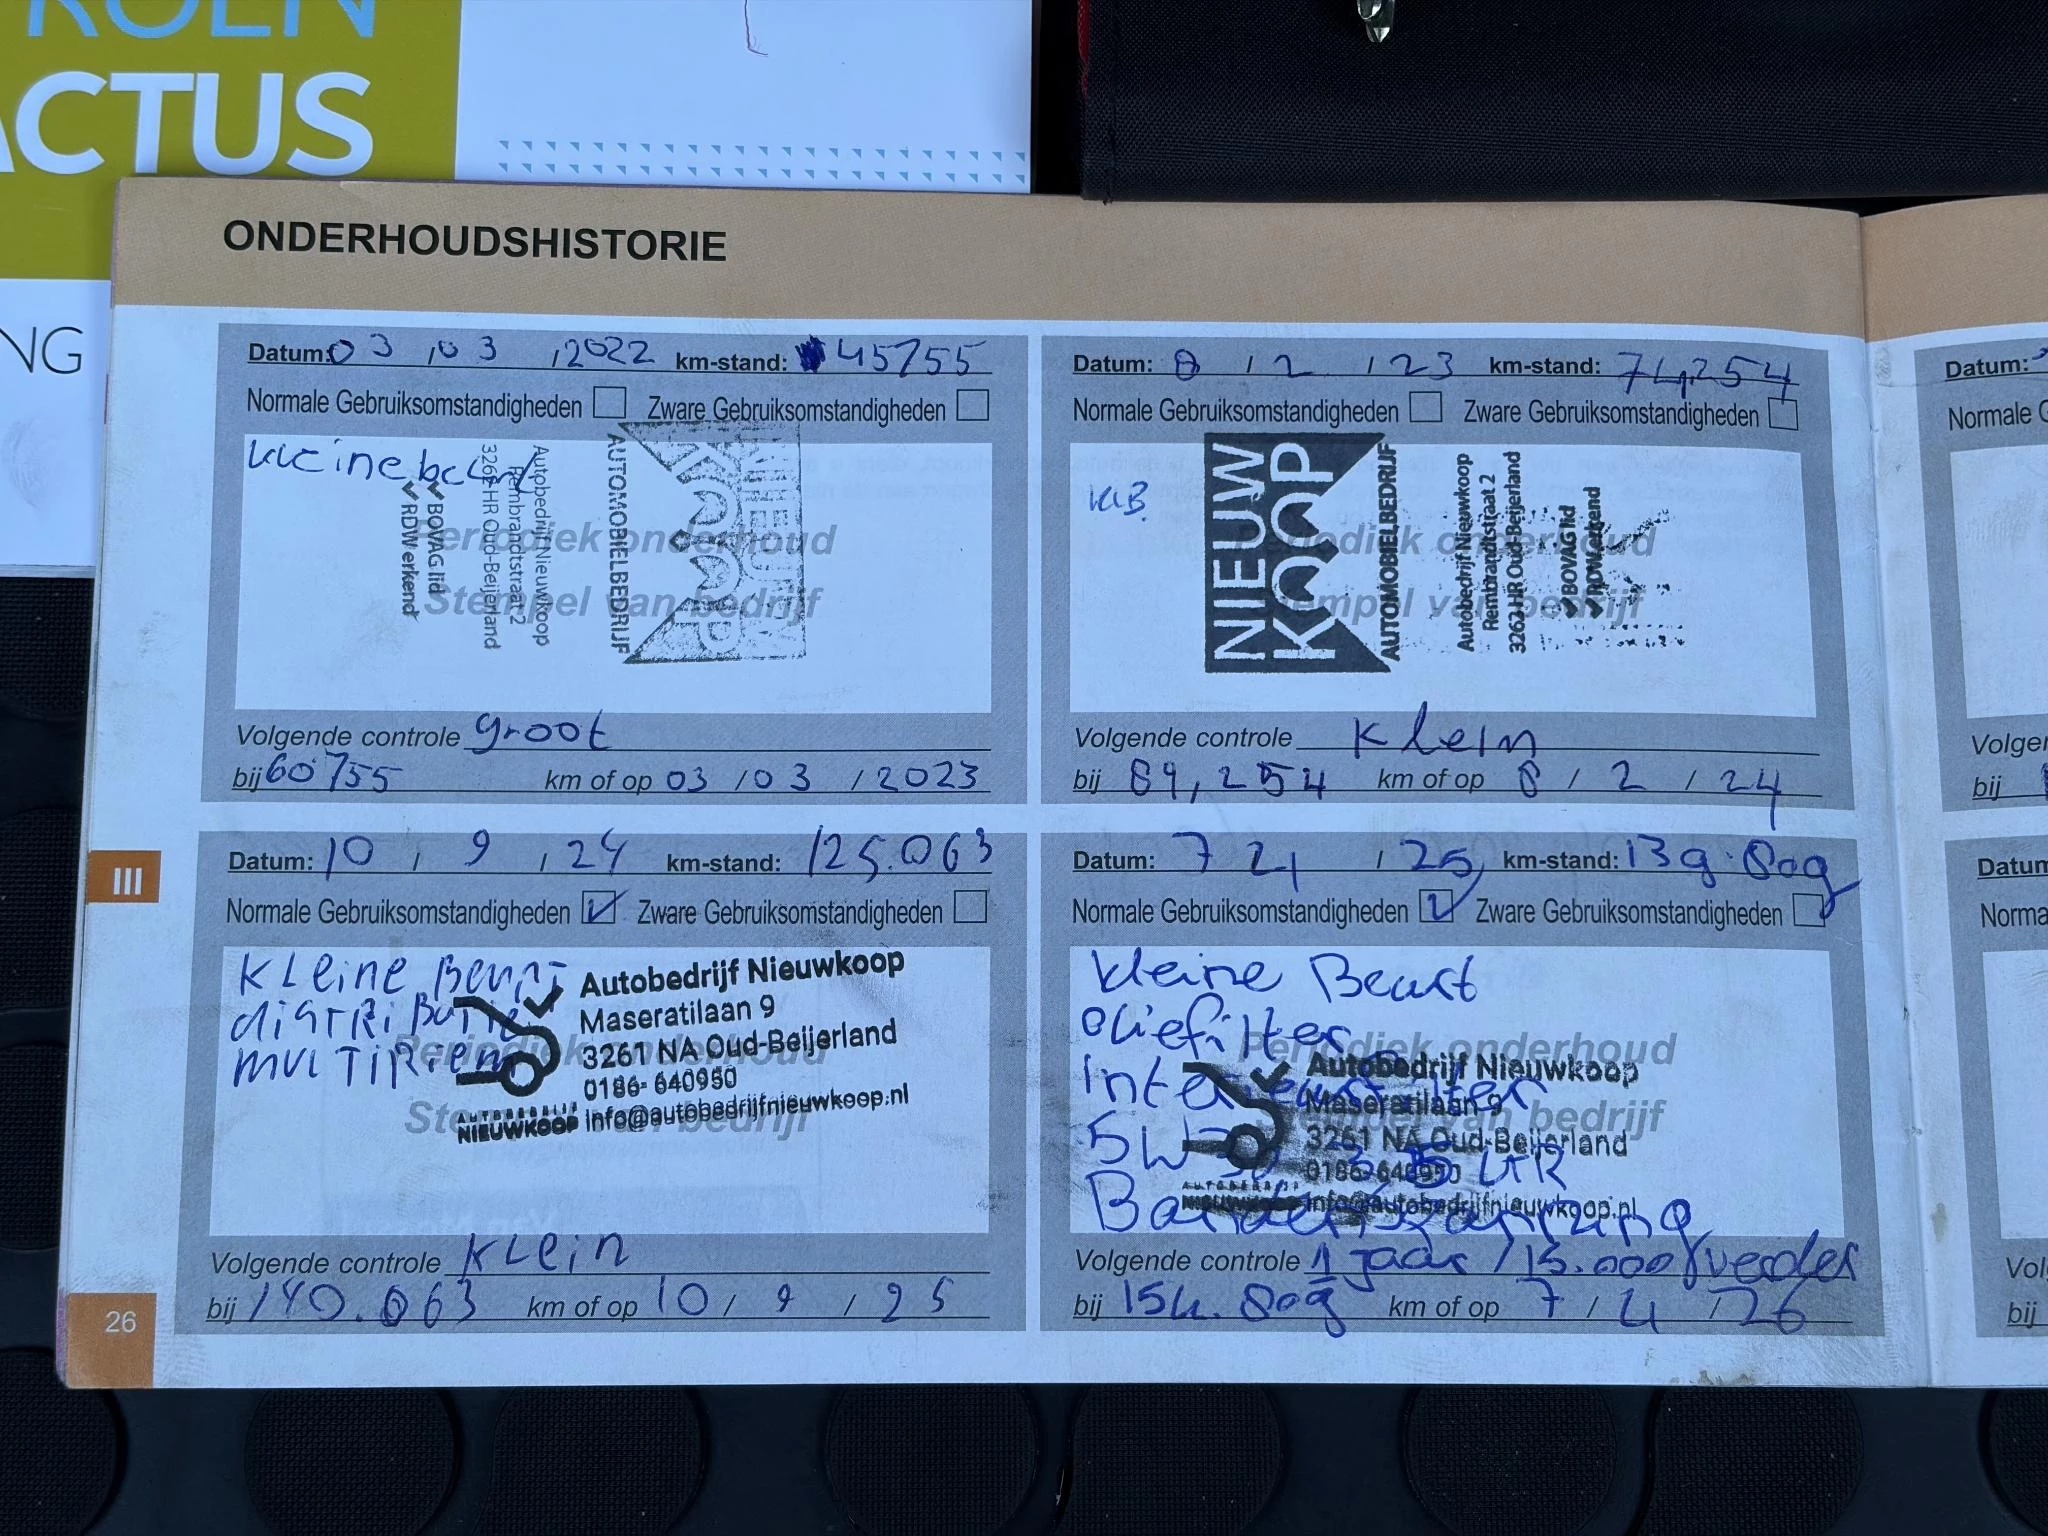 ROEN
ACTUS
NG
ONDERHOUDSHISTORIE
Datum: 03 / 03 / 2022 km-stand: 45755
Normale Gebruiksomstandigheden Zware Gebruiksomstandigheden
kleine beurt
NIEUW
KOOP
AUTOMOBIELBEDRIJF
Autobedrijf Nieuwkoop
Rembrandtstraat 2
3262 HR Oud-Beijerland
✓ BOVAG lid
✓ RDW erkend
Periodiek onderhoud
Stempel van bedrijf
Volgende controle groot
bij 60755 km of op 03 / 03 / 2023
Datum: 8 / 2 / 23 km-stand: 74,254
Normale Gebruiksomstandigheden Zware Gebruiksomstandigheden
KLB.
NIEUW
KOOP
AUTOMOBIELBEDRIJF
Autobedrijf Nieuwkoop
Rembrandtstraat 2
3262 HR Oud-Beijerland
✓ BOVAG lid
✓ RDW erkend
Periodiek onderhoud
Stempel van bedrijf
Volgende controle Klein
bij 89,254 km of op 8 / 2 / 24
Datum: 10 / 9 / 24 km-stand: 125.063
Normale Gebruiksomstandigheden Zware Gebruiksomstandigheden
KLEINE BEURT
DISTRIBUTIE
MULTIRIEM
Autobedrijf Nieuwkoop
Maseratilaan 9
3261 NA Oud-Beijerland
0186-640950
info@autobedrijfnieuwkoop.nl
AUTOBEDRIJF
NIEUWKOOP
Periodiek onderhoud
Stempel van bedrijf
Volgende controle KLEIN
bij 140.063 km of op 10 / 9 / 25
Datum: 7 4 / 25 km-stand: 139.809
Normale Gebruiksomstandigheden Zware Gebruiksomstandigheden
kleine Beurt
oliefilter
Interieurfilter
LTR
Autobedrijf Nieuwkoop
Maseratilaan 9
3261 NA Oud-Beijerland
0186-640950
info@autobedrijfnieuwkoop.nl
AUTOBEDRIJF
NIEUWKOOP
Periodiek onderhoud
Stempel van bedrijf
Volgende controle 1 jaar / 15.000 verder
bij 154.809 km of op 7 / 4 / 26
III
26
Datum:
Normale G
Volge
bij
Datum
Norma
Vol
bij